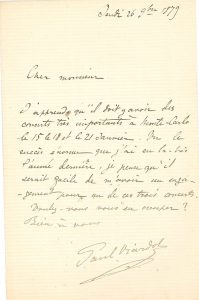 Jeudi 26 9bre 1879
Cher monsieur
J'apprends qu'il doit y avoir des
concerts très importants à Monte-Carlo
le 15 le 18 et le 21 Janvier. Vu le
succès énorme que j'ai eu là-bas
l'année dernière, je pense qu'il
serait facile de m'avoir un enga-
gement pour un de ces trois concerts.
Voulez-vous vous en occuper?
Bien à vous
Paul Viardot